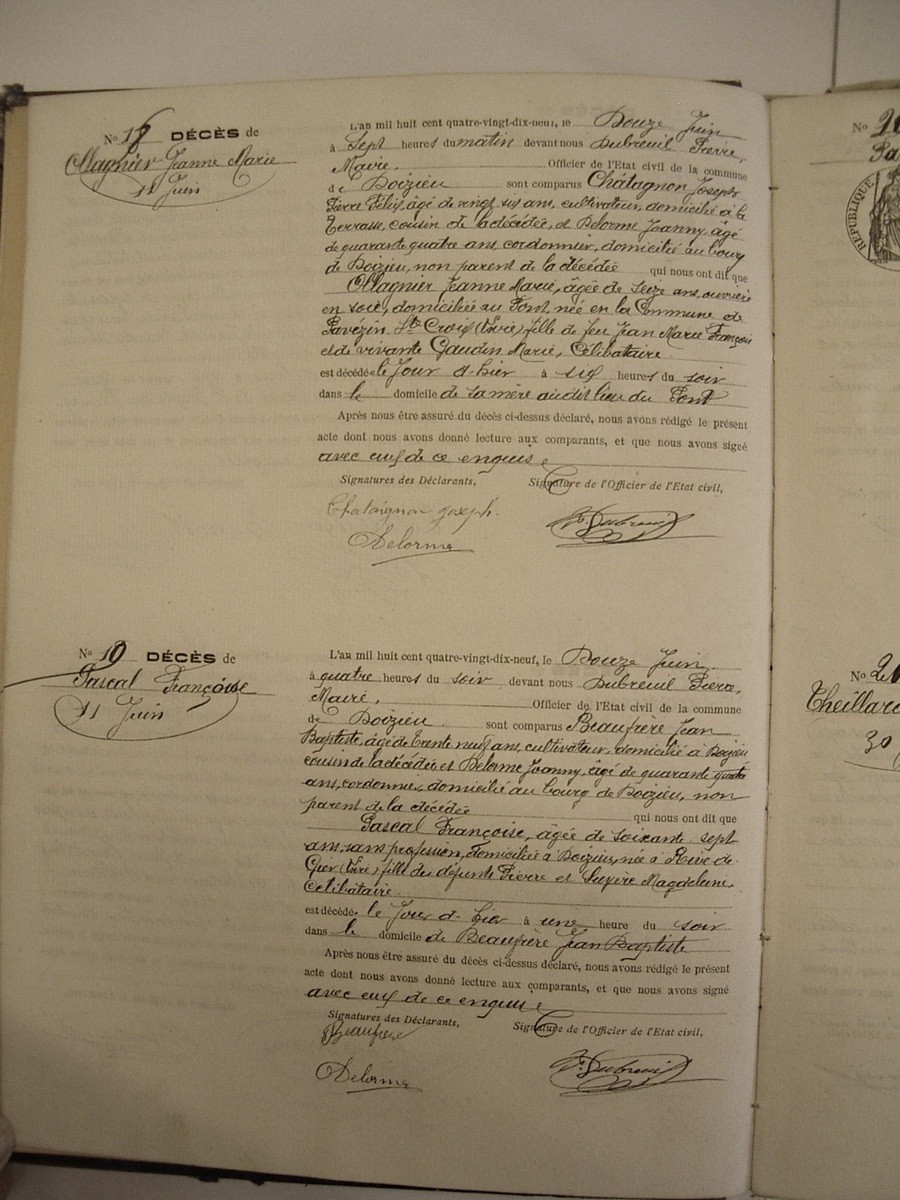 No 18 DÉCÈS de
Ollagnier Jeanne Marie
11 Juin
L'an mil huit cent quatre-vingt-dix-neuf, le Douze Juin
à Sept heures du matin devant nous Dubreuil Pierre,
Maire, Officier de l'Etat civil de la commune
de Doizieu sont comparus Châtagnon Joseph
Pierre Félix, âgé de vingt six ans, cultivateur, domicilié à la
Terrasse, cousin de la décédée, et Delorme Joanny, âgé
de quarante quatre ans, cordonnier, domicilié au bourg
de Doizieu, non parent de la décédée qui nous ont dit que
Ollagnier Jeanne Marie, âgée de Seize ans, ouvrière
en soie, domiciliée au Pont, née en la Commune de
Pavezin Ste Croix (Loire) fille de feu Jean Marie François
et de vivante Gaudin Marie, Célibataire
est décédée le Jour d'hier à six heures du soir
dans le domicile de sa mère audit lieu du Pont
Après nous être assuré du décès ci-dessus déclaré, nous avons rédigé le présent
acte dont nous avons donné lecture aux comparants, et que nous avons signé
avec eux de ce enquis
Signatures des Déclarants, Signature de l'Officier de l'Etat civil,
Chataignon Joseph.
Delorme
P. Dubreuil
No 19 DÉCÈS de
Pascal Françoise
11 Juin
L'an mil huit cent quatre-vingt-dix-neuf, le Douze Juin
à quatre heures du soir devant nous Dubreuil Pierre,
Maire, Officier de l'Etat civil de la commune
de Doizieu sont comparus Beaufrère Jean
Baptiste, âgé de trente neuf ans, cultivateur, domicilié à Doizieu
cousin de la décédée et Delorme Joanny, âgé de quarante quatre
ans, cordonnier, domicilié au bourg de Doizieu, non
parent de la décédée qui nous ont dit que
Pascal Françoise, âgée de soixante sept
ans, sans profession, domiciliée à Doizieu, née à Rive de
Gier (Loire) fille des défunts Pierre et Magdeleine,
Célibataire
est décédée le Jour d'hier à une heure du soir
dans le domicile de Beaufrère Jean Baptiste
Après nous être assuré du décès ci-dessus déclaré, nous avons rédigé le présent
acte dont nous avons donné lecture aux comparants, et que nous avons signé
avec eux de ce enquis
Signatures des Déclarants, Signature de l'Officier de l'Etat civil,
Beaufrere
Delorme
P. Dubreuil
No 20
Pa
REPUBLIQUE
No 21
Theillard
30